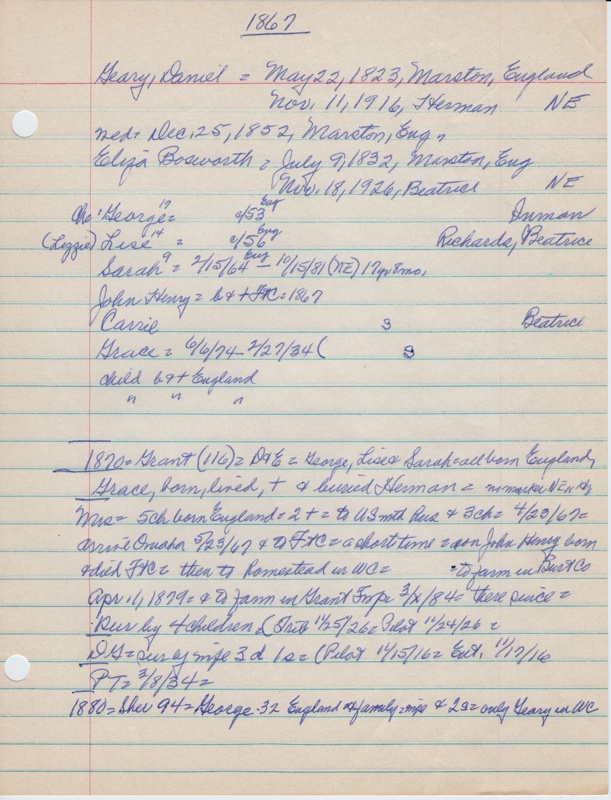 1867
Geary, Daniel = May 22, 1823, Marston, England
Nov. 11, 1916, Herman NE
med = Dec. 25, 1852, Marston, Eng.
Eliza Bosworth = July 9, 1832, Marston, Eng
Nov. 18, 1926, Beatrice NE
Cho: George 17 = c/53 Eng Inman
(Lizzie) Lise 14 = c/56 Eng Richards, Beatrice
Sarah 9 = 2/15/64 Eng - 10/15/81 (NE) 17yr 8mo.
John Henry = b & + F&C = 1867
Carrie s Beatrice
Grace = 6/6/74 - 2/27/34 ( s
child b & + England
" " "
1870 = Grant (116) = D&E = George, Lise & Sarah = all born England,
Grace, born, lived, + & buried Herman = no marker NE
Mrs = 5ch born England = 2 + = to US with Hus & 3ch = 4/23/67 =
arrive Omaha 5/23/67 & to F&C = a short time = son John Henry born
& died F&C = then to Homestead in WC = to farm in Burt Co
Apr. 11, 1879 = & to farm in Grant Twp. 3/x/84 = there since =
Sur by 4 children = (Trib 11/25/26 = Pilot 11/24/26 =
DG = sur by wife 3 d 1 s = (Pilot 11/15/16 = Ent. 11/17/16
PT = 3/8/34 =
1880 = Sher 94 = George 32 England & family = wife & 2s = only Geary in WC